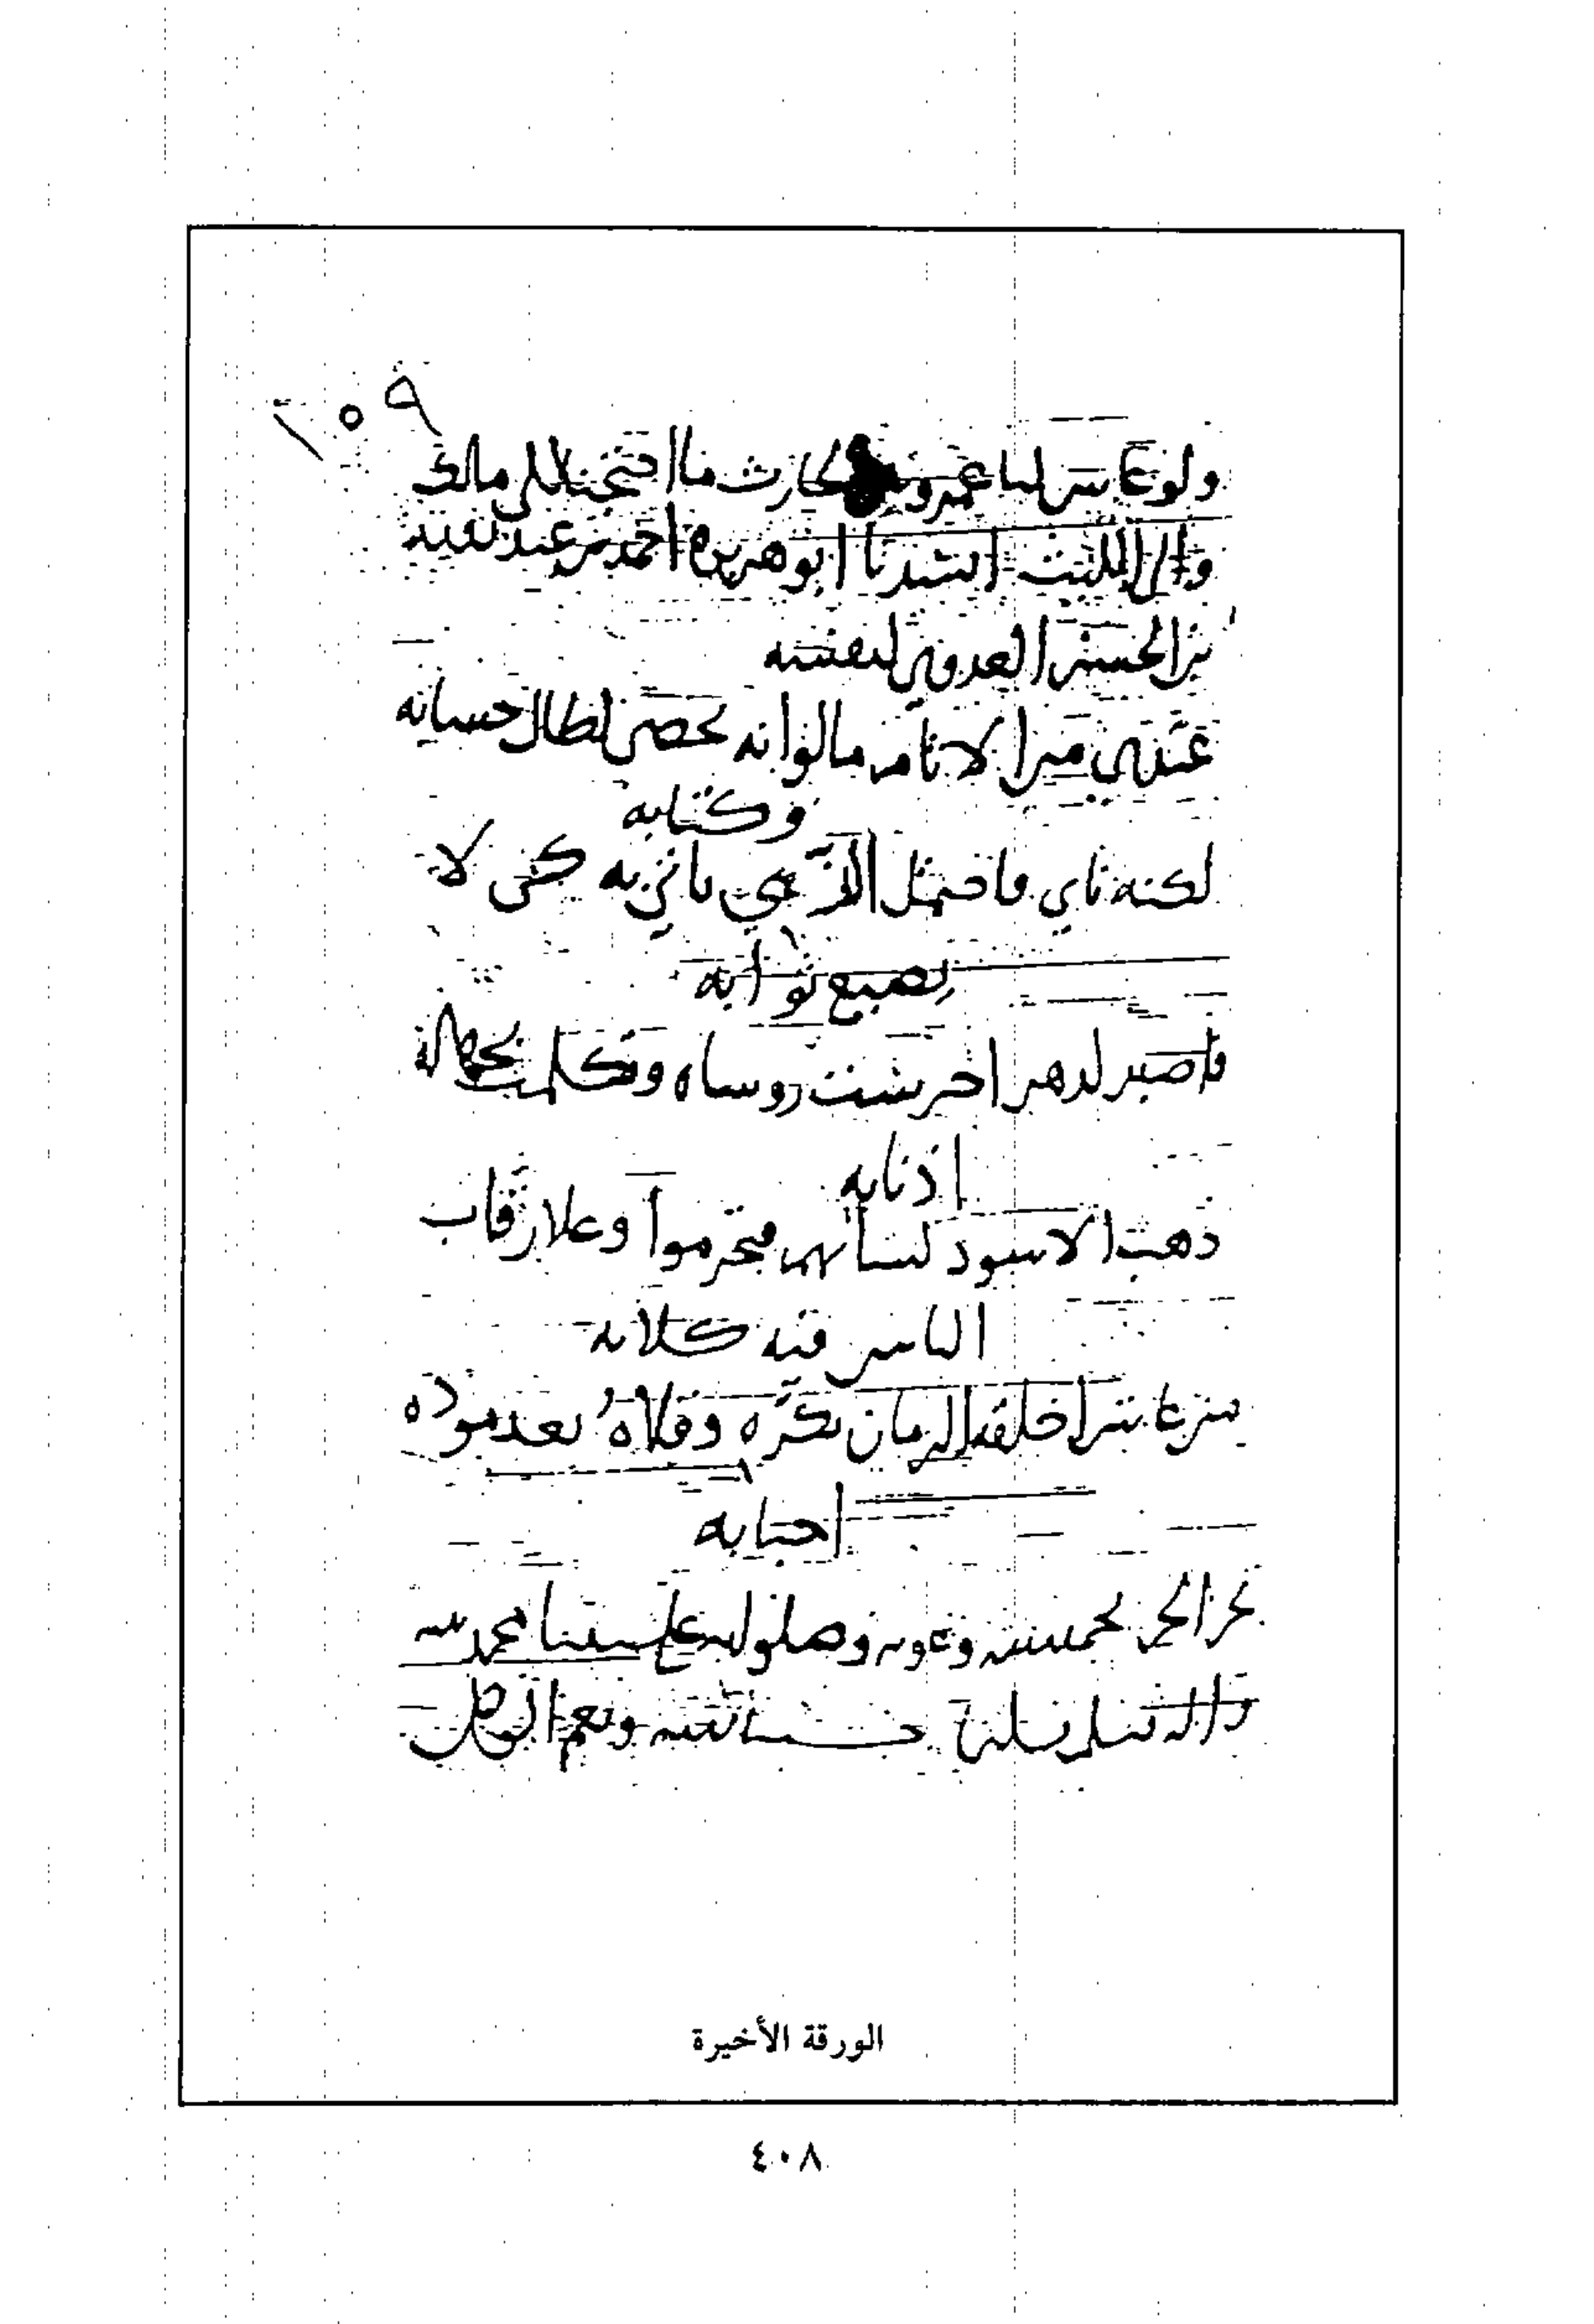 ١٠٩
ولو عاش لنا عمرو بن الحارث ما احتجنا الى مالك
قال ابو الليث انشدنا ابو هريرة احمد بن عبد الله
بن الحسن العدوي لنفسه
عندي من الانام ما لو انه يحصى لطال حسابه
وكتابه
لكنه ناي فاضمل الذي ياتي به كي لا
يضيع ثوابه
فاصبر لدهر اخرست روساه وتكلمت بجهالة
اذنابه
ذهب الاسود لشانهم فتخرموا وعلا رقاب
الناس فيه كلابه
من عاش اخلقه الزمان بكره وقلاه بعد مودة
احبابه
نجز الجز بحمد الله وعونه وصلواته على سيدنا محمد نبيه
واله وسلم تسليما حسبنا الله ونعم الوكيل
الورقة الأخيرة
٤٠٨